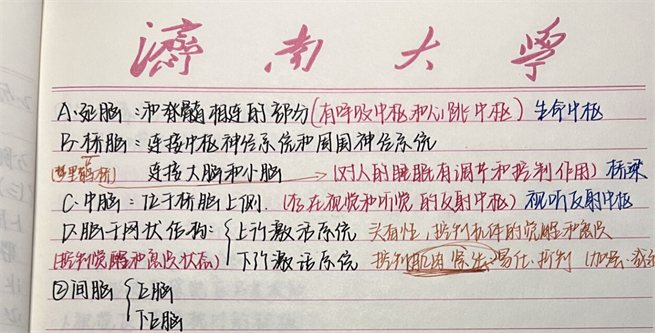 濟南大學
A.延脑：和脊髓相连的部分(有呼吸中枢和心跳中枢) 生命中枢
B.桥脑：连接中枢神经系统和周围神经系统
连接大脑和小脑 → (对人的睡眠有调节和控制作用) 桥梁
C.中脑：位于桥脑上侧.(存在视觉和听觉的反射中枢) 视听反射中枢
D.脑干网状结构：{上行激活系统 控制机体的觉醒和意识
(控制觉醒和意识状态) 下行激活系统 控制肌肉紧张 易化.抑制 (加强.
②间脑{丘脑
下丘脑